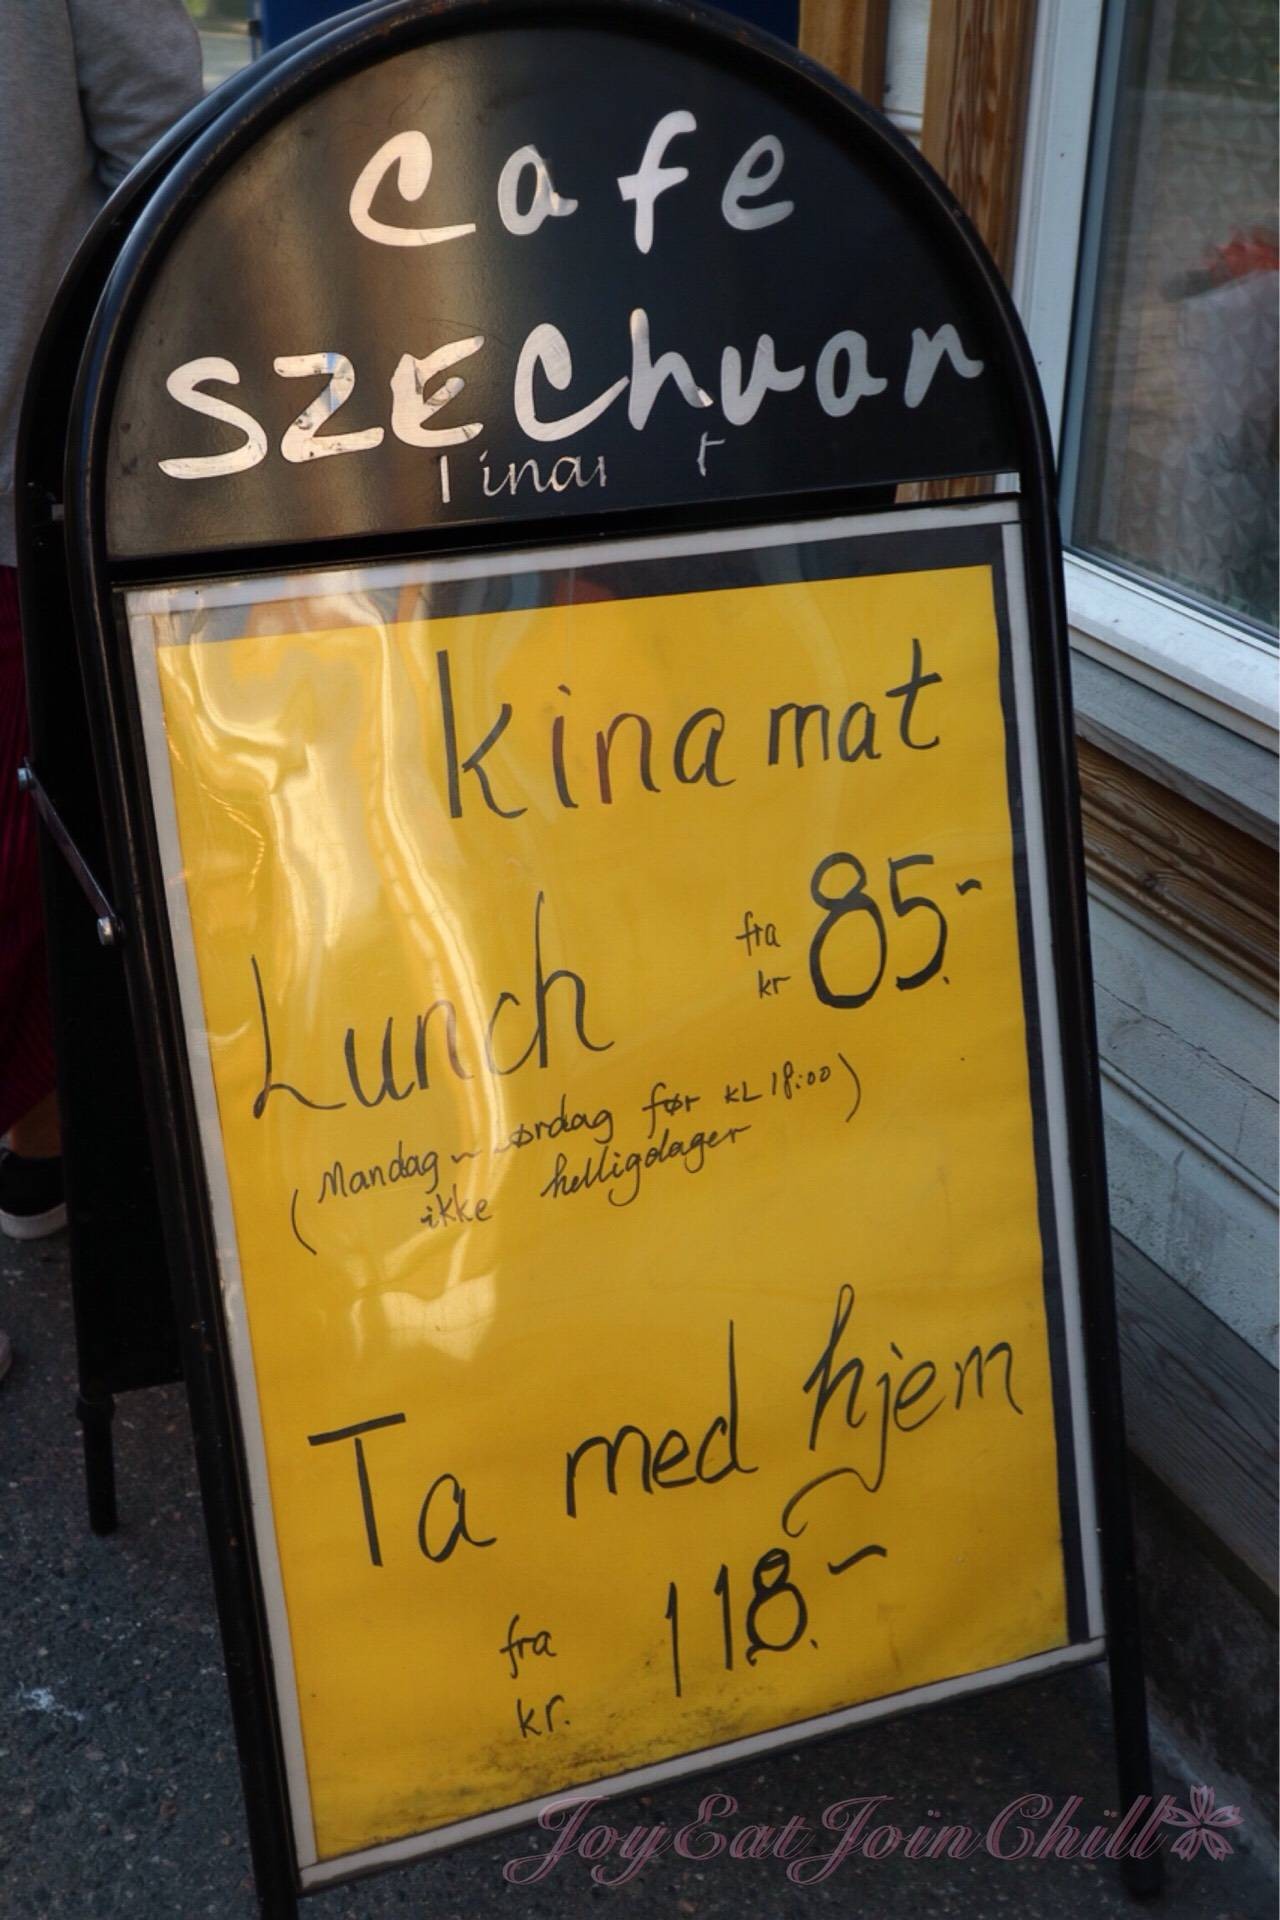 Cafe
SZEChuan
kina mat
Lunch fra kr 85.-
(Mandag ~ lørdag før kL 18:00)
ikke helligdager
Ta med hjem
fra kr. 118.-
JoyEatJoinChill